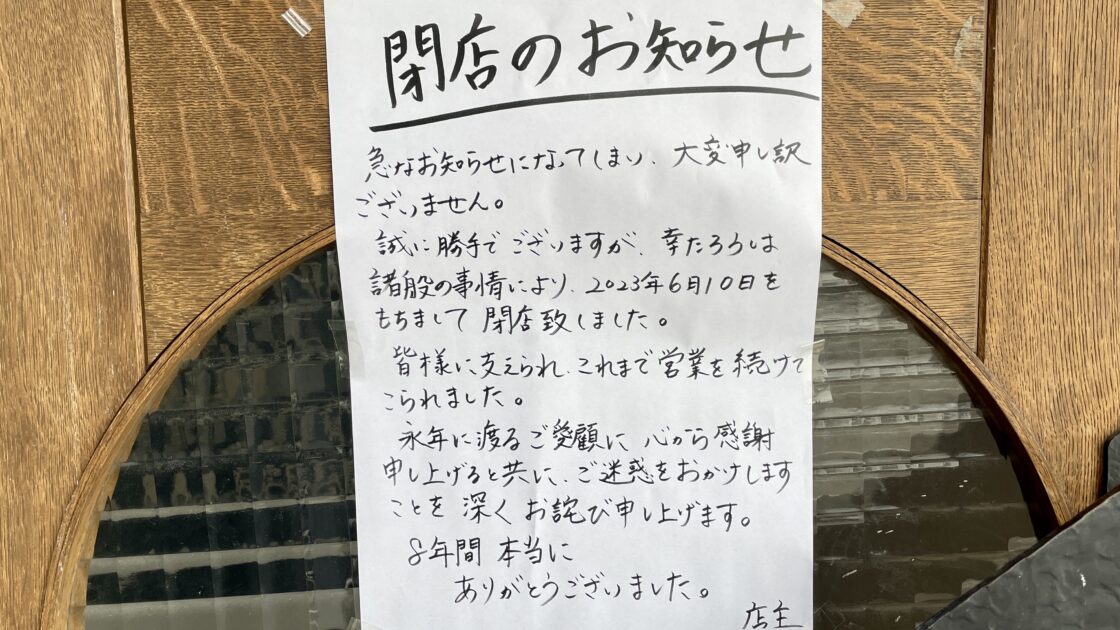 閉店のお知らせ
急なお知らせになってしまい、大変申し訳
ございません。
誠に勝手でございますが、幸たろうは
諸般の事情により、2023年6月10日を
もちまして閉店致しました。
皆様に支えられ、これまで営業を続けて
こられました。
永年に渡るご愛顧に心から感謝
申し上げると共に、ご迷惑をおかけします
ことを深くお詫び申し上げます。
8年間本当に
ありがとうございました。
店主